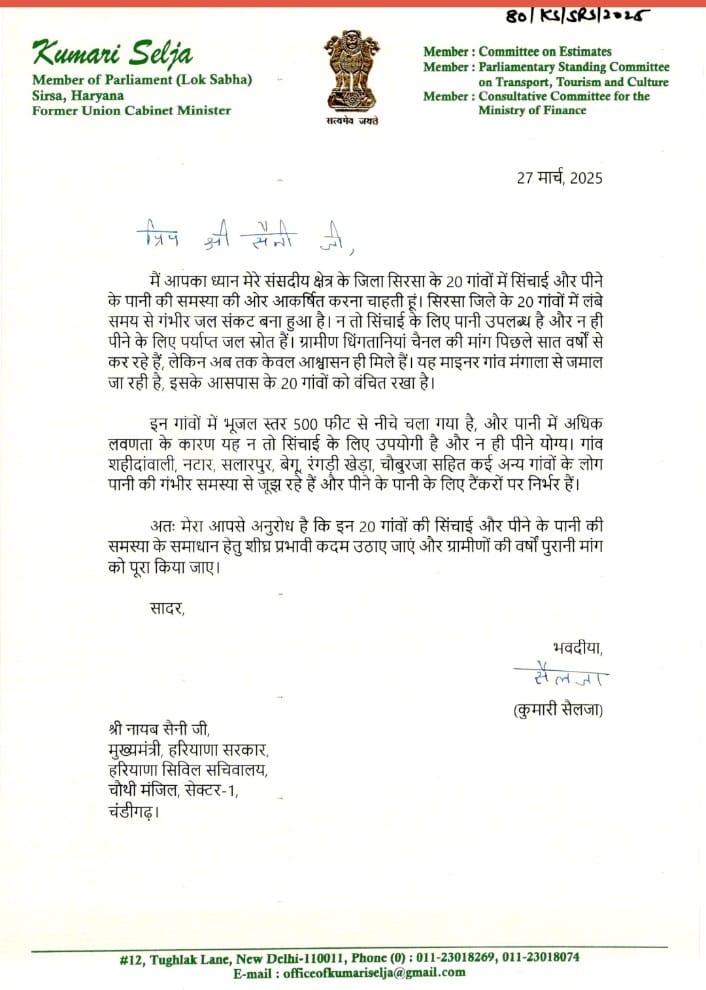 80/KS/SRS/2025
Kumari Selja
Member of Parliament (Lok Sabha)
Sirsa, Haryana
Former Union Cabinet Minister
सत्यमेव जयते
Member : Committee on Estimates
Member : Parliamentary Standing Committee
on Transport, Tourism and Culture
Member : Consultative Committee for the
Ministry of Finance
27 मार्च, 2025
प्रिय श्री सैनी जी,
मैं आपका ध्यान मेरे संसदीय क्षेत्र के जिला सिरसा के 20 गांवों में सिंचाई और पीने
के पानी की समस्या की ओर आकर्षित करना चाहती हूं। सिरसा जिले के 20 गांवों में लंबे
समय से गंभीर जल संकट बना हुआ है। न तो सिंचाई के लिए पानी उपलब्ध है और न ही
पीने के लिए पर्याप्त जल स्रोत हैं। ग्रामीण धिंगतानियां चैनल की मांग पिछले सात वर्षों से
कर रहे हैं, लेकिन अब तक केवल आश्वासन ही मिले हैं। यह माइनर गांव मंगाला से जमाल
जा रही है, इसके आसपास के 20 गांवों को वंचित रखा है।
इन गांवों में भूजल स्तर 500 फीट से नीचे चला गया है, और पानी में अधिक
लवणता के कारण यह न तो सिंचाई के लिए उपयोगी है और न ही पीने योग्य। गांव
शहीदांवाली, नटार, सलारपुर, बेगू, रंगड़ी खेड़ा, चौबुरजा सहित कई अन्य गांवों के लोग
पानी की गंभीर समस्या से जूझ रहे हैं और पीने के पानी के लिए टैंकरों पर निर्भर हैं।
अतः मेरा आपसे अनुरोध है कि इन 20 गांवों की सिंचाई और पीने के पानी की
समस्या के समाधान हेतु शीघ्र प्रभावी कदम उठाए जाएं और ग्रामीणों की वर्षों पुरानी मांग
को पूरा किया जाए।
सादर,
भवदीया,
सैलजा
(कुमारी सैलजा)
श्री नायब सैनी जी,
मुख्यमंत्री, हरियाणा सरकार,
हरियाणा सिविल सचिवालय,
चौथी मंजिल, सेक्टर-1,
चंडीगढ़।
#12, Tughlak Lane, New Delhi-110011, Phone (0) : 011-23018269, 011-23018074
E-mail : officeofkumariselja@gmail.com